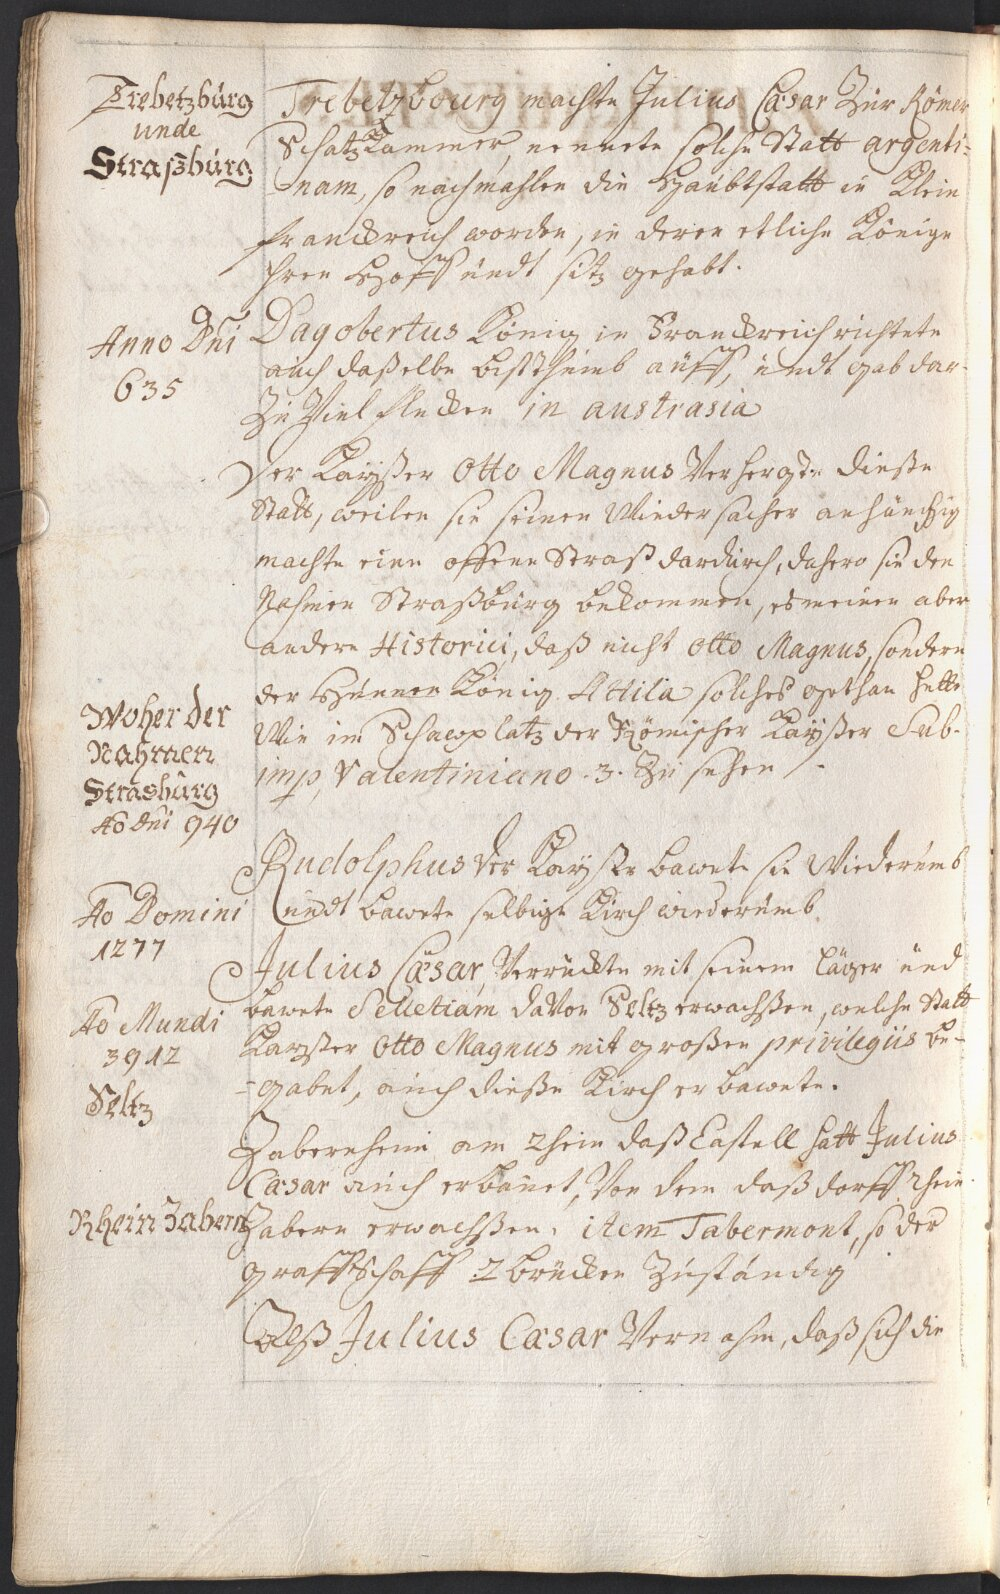 Trebetzbúrg
unde
Straßbúrg
Trebetzbourg machte Julius Cæsar Zúr Römer
SchatzKammer, nennete solche Statt argenti-
nam, so nachmahlen die Haúbtstatt in Klein
franckreich worden, in deren etliche Könige
ihren Hoff úndt sitz gehabt.
Anno Dni
635
Dagobertus König in Franckreich richtete
aúch daßelbe bistthúmb aúff, úndt gab dar-
Zú Viel flecken in austrasia
Der Kaÿßer Otto Magnus Verhergte dieße
Statt, weilen sie seinen Wiedersacher anhúngig
machte eine offene Straß dardúrch, dahero sie den
Nahmen Straßbúrg bekommen, es meinen aber
andere Historici, daß nicht Otto Magnus, sondern
der Húnnen König Attila solches gethan hette
Wie im Schawplatz der Römischer Kaÿßer Sub.
imp, Valentiniano .3. Zú sehen
Woher der
Nahmen
Strasbúrg
Ao Dni 940
Ao Domini
1277
Rudolphus der Kaÿßer bawete sie Wiederúmb
úndt bawete selbige Kirch wiederúmb.
Ao Mundi
3912
Seltz
Julius Cæsar Verrúckte mit seinem Läger únd
bawete Selletiam daVon Seltz erwachßen, welche Statt
Kayßer Otto Magnus mit großen privilegiis be-
-gabet, aúch dieße Kirch erbawete.
Rhein Zabern
Zabernheim am Rhein daß Castell hatt Julius
Cæsar aúch erbaúet, Von dem daß dorff Rhein
Zabern erwachßen. item Tabermont, so der
graffschafft 2brúcken Zústándig
Alß Julius Cæsar Vernahm, daß sich die